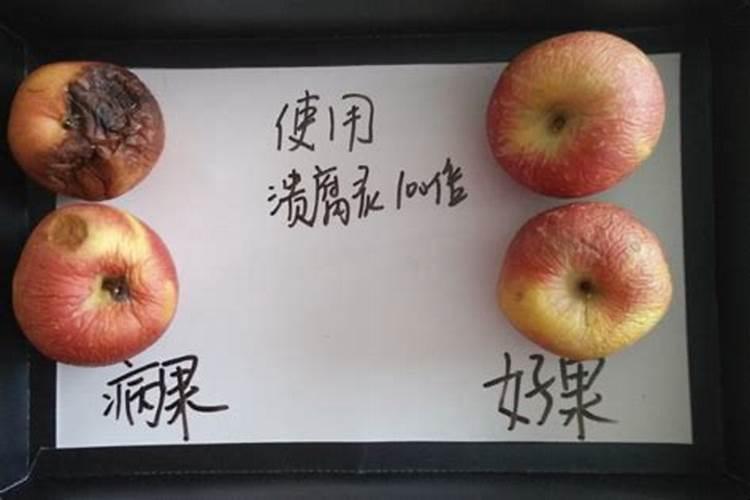 使用
溃腐灵100倍
病果
好果